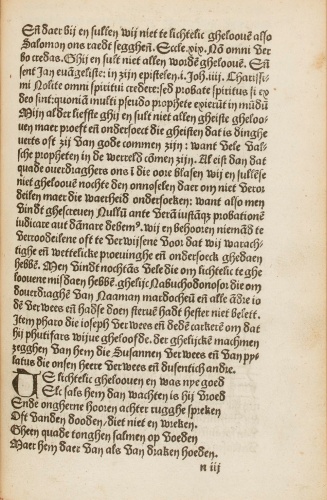 Eñ daer bij en sullen wij niet te lichtelic ghelooue͂ also
Salomon ons raedt segghen̄. Eccle.xix. Nō omni ver
bo credas. Ghij en sult niet allen wordē ghelooue͂. Sn̄
sent Jan euāgeliste: in zijn epistelen.i. Joh.iiij. Charissi
mi Nolite omni spiritui credere: sed probate spiritus si ex
deo sint: quoniā multi pseudo prophete exierūt in mūdū
Mijn alder liefste ghij en sult niet allen gheiste gheloo
uen maer proeft en̄ ondersoect die gheisten dat is dinghe
uerts oft zij van gode commen zijn: want vele val-
sche propheten in de werreld cōmen zijn. Al eist dan dat
quade ouerdraghers ons ī die oore blasen wij en sullēse
niet ghelooue͂ nochte den onnoselen daer om niet veror
deilen maer die waerheid ondersoeken: want also men
vindt ghescreuen Nullū ante verā iustāqȝ probationē
iudicare aut dānare debemꝰ. wij en behooren niemād te
verroodeilene oft te verwijsene voor dat wij warach/
tighe en̄ wettelicke proeuinghe en̄ ondersoeck ghedaen
hebbē. Men vindt nochtās vele die om lichtelic te ghe
loouene misdaen hebbē. ghelijc Nabuchodonosor die om
douerdraghē van Naaman mardocheū en̄ alle āde io
dē verwees en̄ hadse doen steruē hadt hester niet belett.
Item pharo die ioseph verwees en̄ dedē carkerē om dat
hij phutifars wijue gheloofde. der ghelijcke machmen
zegghen van hem die Susannen verwees en̄ van py-
latus die onsen heere verwees en̄ dusentich andre.
Us lichtelic ghelooven en was nye goed
Elc sals hem dan wachten is hij vroed
Ende ongherne hooren achter rugghe spreken
Oft vanden dooden/diet niet en wreken.
Gheen quade tonghen salmen op voeden
Maer hem daer van als van draken hoeden.
n iij